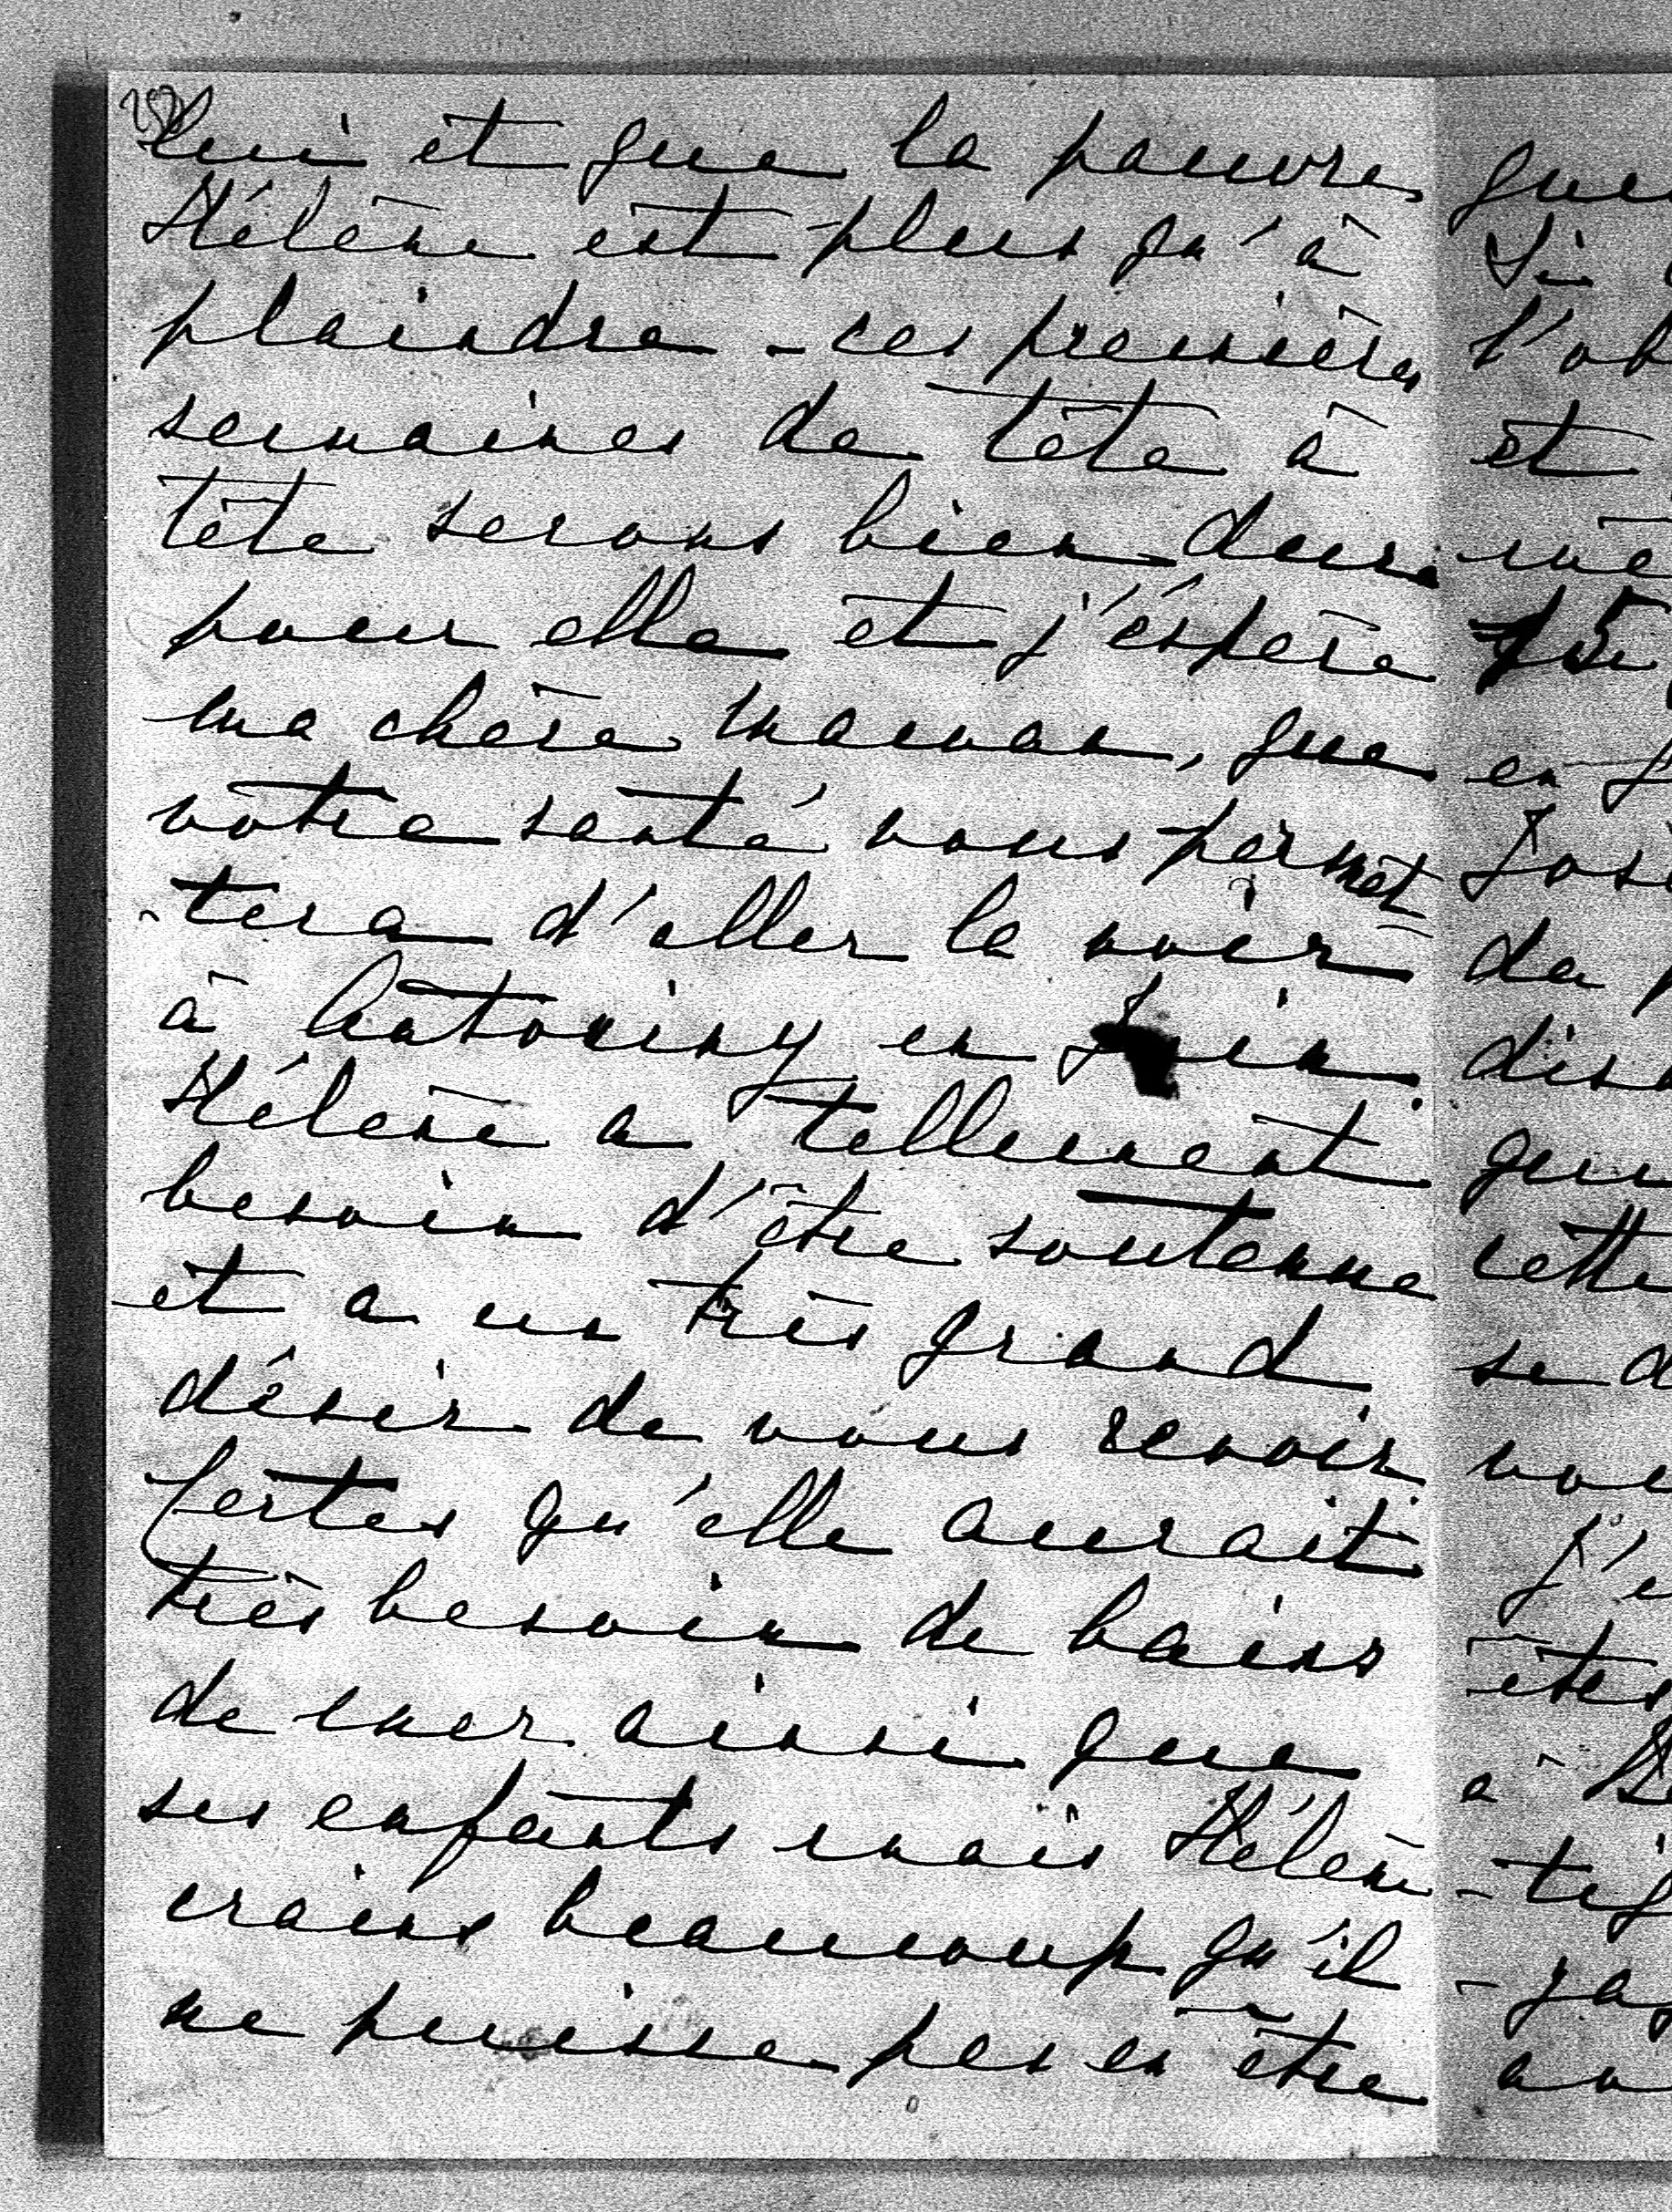 lui et que la pauvre
Hélène est plus qu'à
plaindre - ces premières
semaines de tête à
tête serons bien dure
pour elle et j'éspère
ma chère maman, que
votre santé vous permet
tera d'aller la voir
à Antoniny en Juin.
Hélène a tellement
besoin d'être soutenue
et a un très grand
désir de vous revoir
Certes qu'elle aurait
très besoin de bains
de mer ainsi que
ses enfants mais Hélène
crains beaucoup qu'il
ne puisse pas en être
que
Si
l'ob
et
mê
en
José
de p
dis
que
cette
se d
vou
j'e
êtes
à